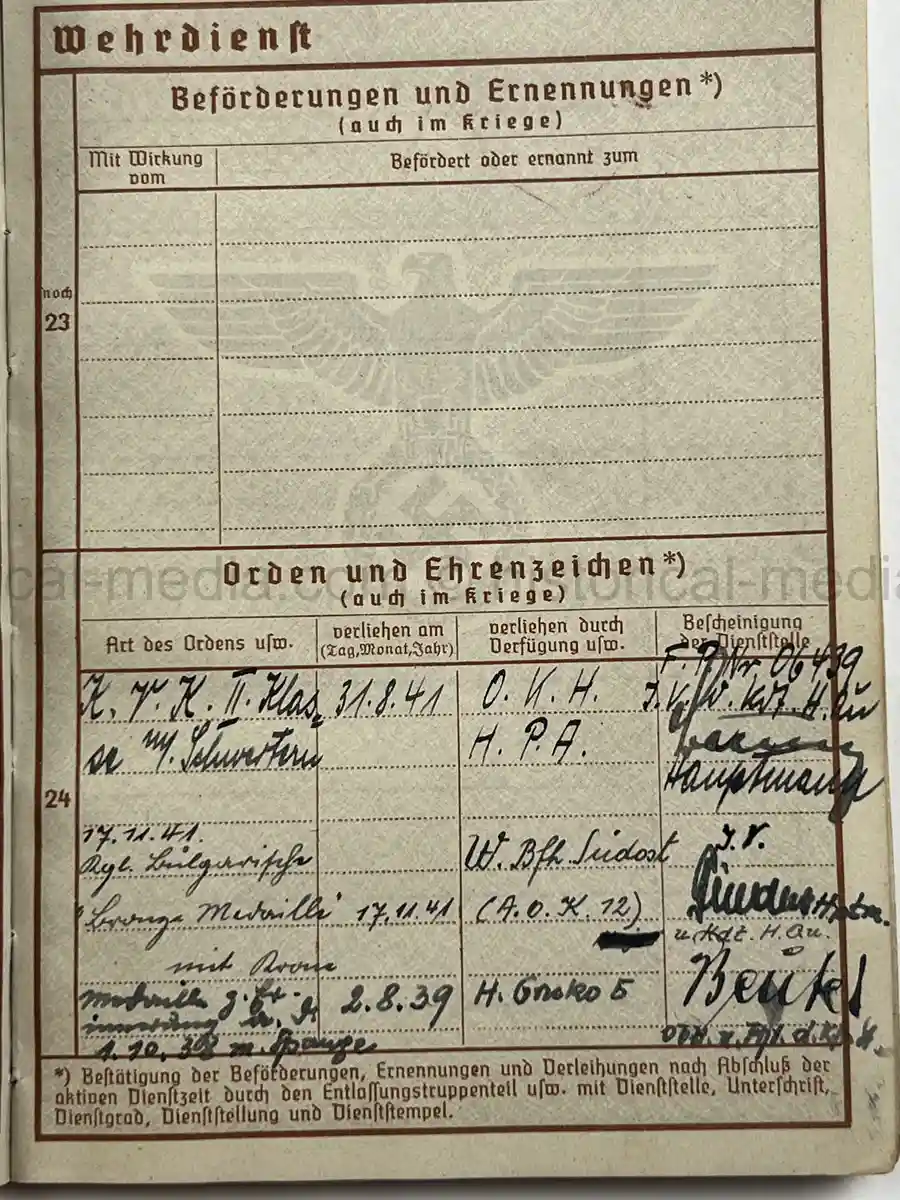 Wehrdienst
Beförderungen und Ernennungen *)
(auch im Kriege)
Mit Wirkung vom
Befördert oder ernannt zum
noch
23
Orden und Ehrenzeichen *)
(auch im Kriege)
Art des Ordens usw.
verliehen am
(Tag, Monat, Jahr)
verliehen durch
Verfügung usw.
Bescheinigung
der Dienststelle
F. P. Nr. 06439
K. V. K. II. Klas 31.8.41 O. K. H.
se m/. Schwertern H. P. A.
Hauptmann
24
17.11.41.
Kgl. Bulgarische W. Bfh. Südost J. V.
"Bronze Medaille" 17.11.41 (A.O.K. 12)
u. Kdt. H. Qu.
mit Krone
Medaille z. Er- 2.8.39 Beutel
innerung a. d.
1. 10. 38 m. Spange
*) Bestätigung der Beförderungen, Ernennungen und Verleihungen nach Abschluß der
aktiven Dienstzeit durch den Entlassungstruppenteil usw. mit Dienststelle, Unterschrift,
Dienstgrad, Dienststellung und Dienststempel.